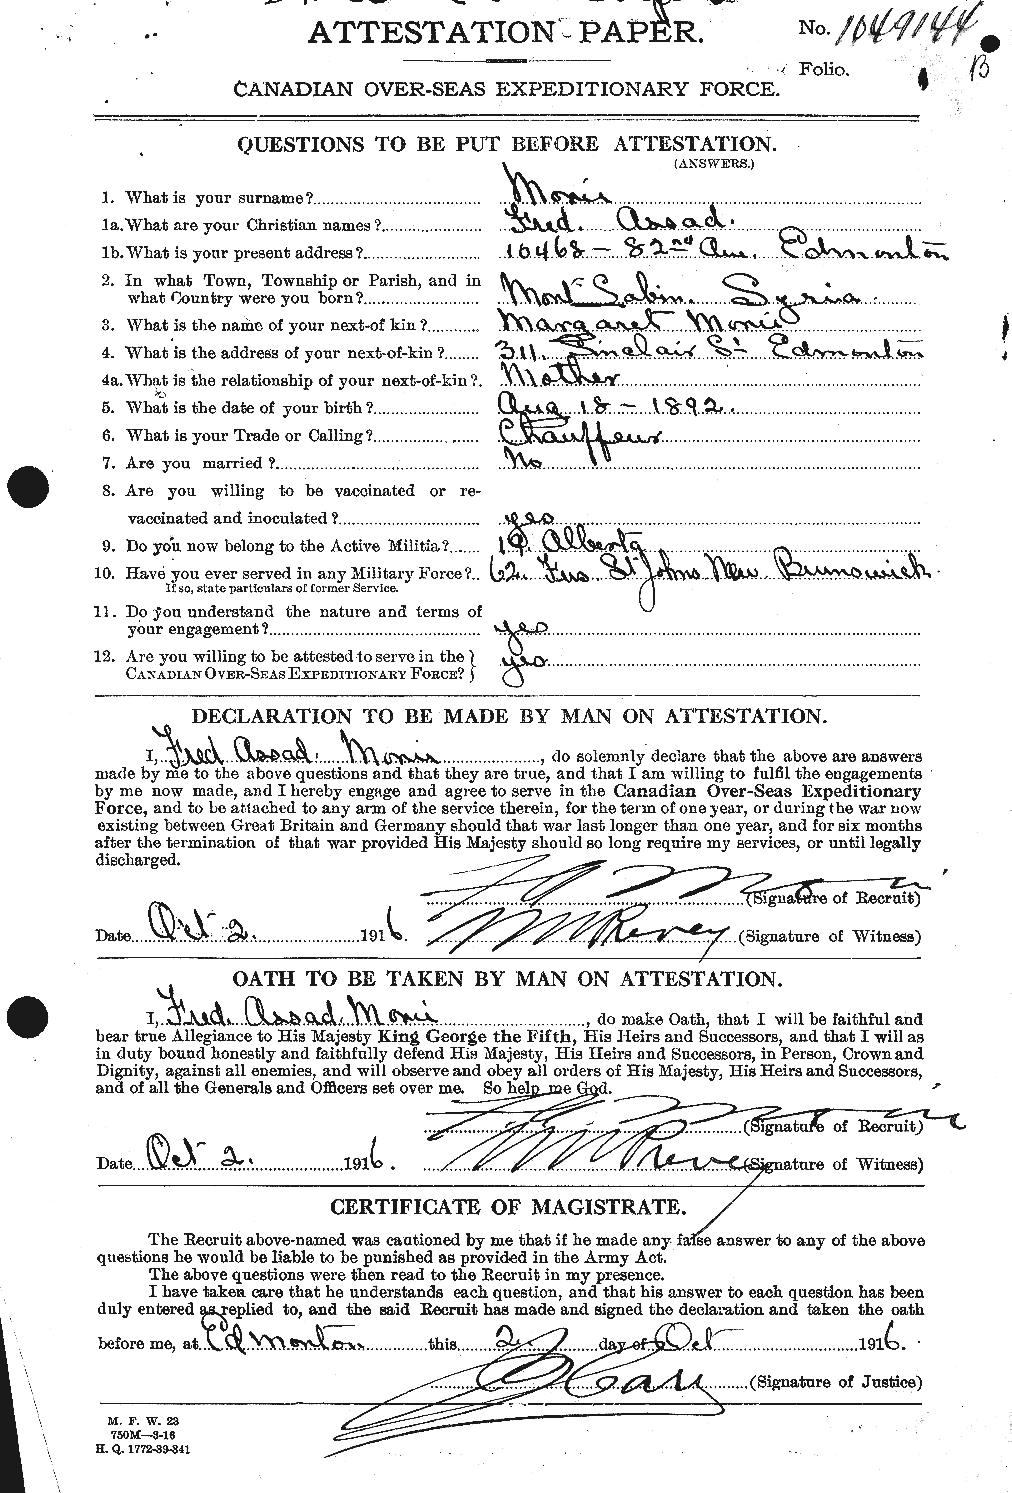 ATTESTATION PAPER.
No. 1049144
Folio. B
CANADIAN OVER-SEAS EXPEDITIONARY FORCE.
QUESTIONS TO BE PUT BEFORE ATTESTATION.
(ANSWERS.)
1. What is your surname? Monie
1a. What are your Christian names? Fred. Assad.
1b. What is your present address? 10468 - 82nd Ave. Edmonton
2. In what Town, Township or Parish, and in
what Country were you born? Mont Sabin. Syria.
3. What is the name of your next-of kin? Margaret Monie
4. What is the address of your next-of-kin? 311. Sinclair St Edmonton
4a. What is the relationship of your next-of-kin? Mother
5. What is the date of your birth? Aug 18 - 1892.
6. What is your Trade or Calling? Chauffeur
7. Are you married? No
8. Are you willing to be vaccinated or re-
vaccinated and inoculated? yes
9. Do you now belong to the Active Militia? 19. Alberta
10. Have you ever served in any Military Force? 62. Fus. St Johns New Brunswick.
If so, state particulars of former Service.
11. Do you understand the nature and terms of
your engagement? yes
12. Are you willing to be attested to serve in the }
CANADIAN OVER-SEAS EXPEDITIONARY FORCE? } yes
DECLARATION TO BE MADE BY MAN ON ATTESTATION.
I, Fred Assad. Monie, do solemnly declare that the above are answers
made by me to the above questions and that they are true, and that I am willing to fulfil the engagements
by me now made, and I hereby engage and agree to serve in the Canadian Over-Seas Expeditionary
Force, and to be attached to any arm of the service therein, for the term of one year, or during the war now
existing between Great Britain and Germany should that war last longer than one year, and for six months
after the termination of that war provided His Majesty should so long require my services, or until legally
discharged.
(Signature of Recruit)
Date Oct 2. 1916. (Signature of Witness)
OATH TO BE TAKEN BY MAN ON ATTESTATION.
I, Fred. Assad. Monie, do make Oath, that I will be faithful and
bear true Allegiance to His Majesty King George the Fifth, His Heirs and Successors, and that I will as
in duty bound honestly and faithfully defend His Majesty, His Heirs and Successors, in Person, Crown and
Dignity, against all enemies, and will observe and obey all orders of His Majesty, His Heirs and Successors,
and of all the Generals and Officers set over me. So help me God.
(Signature of Recruit)
Date Oct 2. 1916. (Signature of Witness)
CERTIFICATE OF MAGISTRATE.
The Recruit above-named was cautioned by me that if he made any false answer to any of the above
questions he would be liable to be punished as provided in the Army Act.
The above questions were then read to the Recruit in my presence.
I have taken care that he understands each question, and that his answer to each question has been
duly entered as replied to, and the said Recruit has made and signed the declaration and taken the oath
before me, at Edmonton this 2 day of Oct 1916.
(Signature of Justice)
M. F. W. 23
750M—3-16
H. Q. 1772-39-841